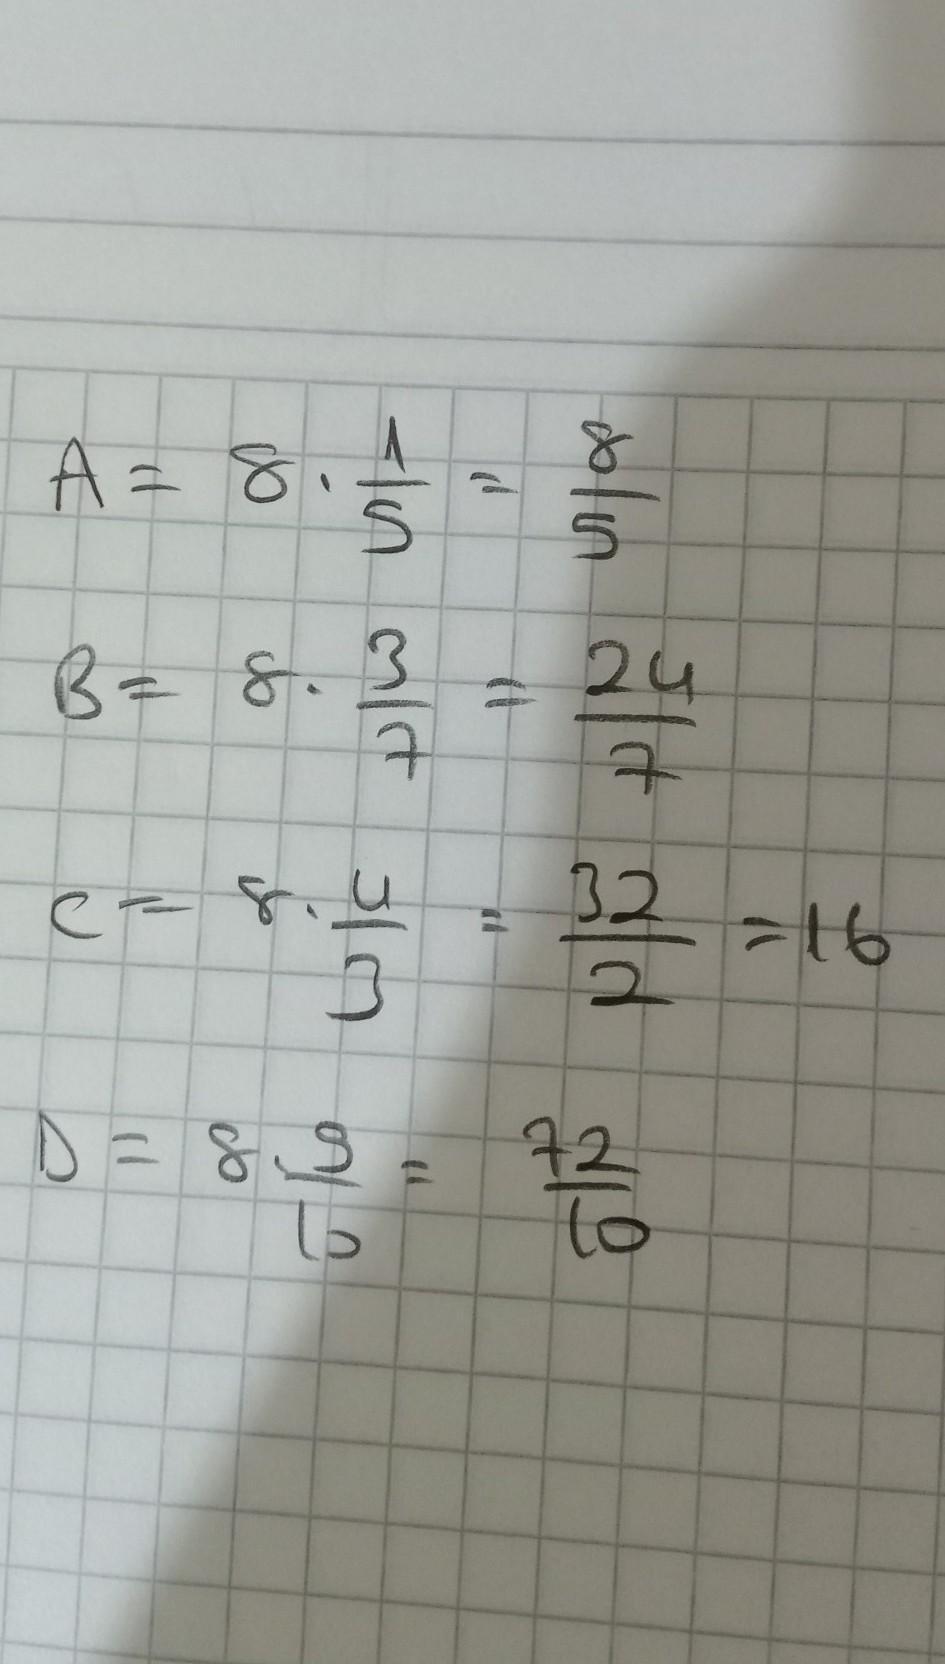 A = 8 · 1/5 = 8/5
B = 8 · 3/7 = 24/7
C = 8 · 4/3 = 32/2 = 16
D = 8 · 9/10 = 72/10